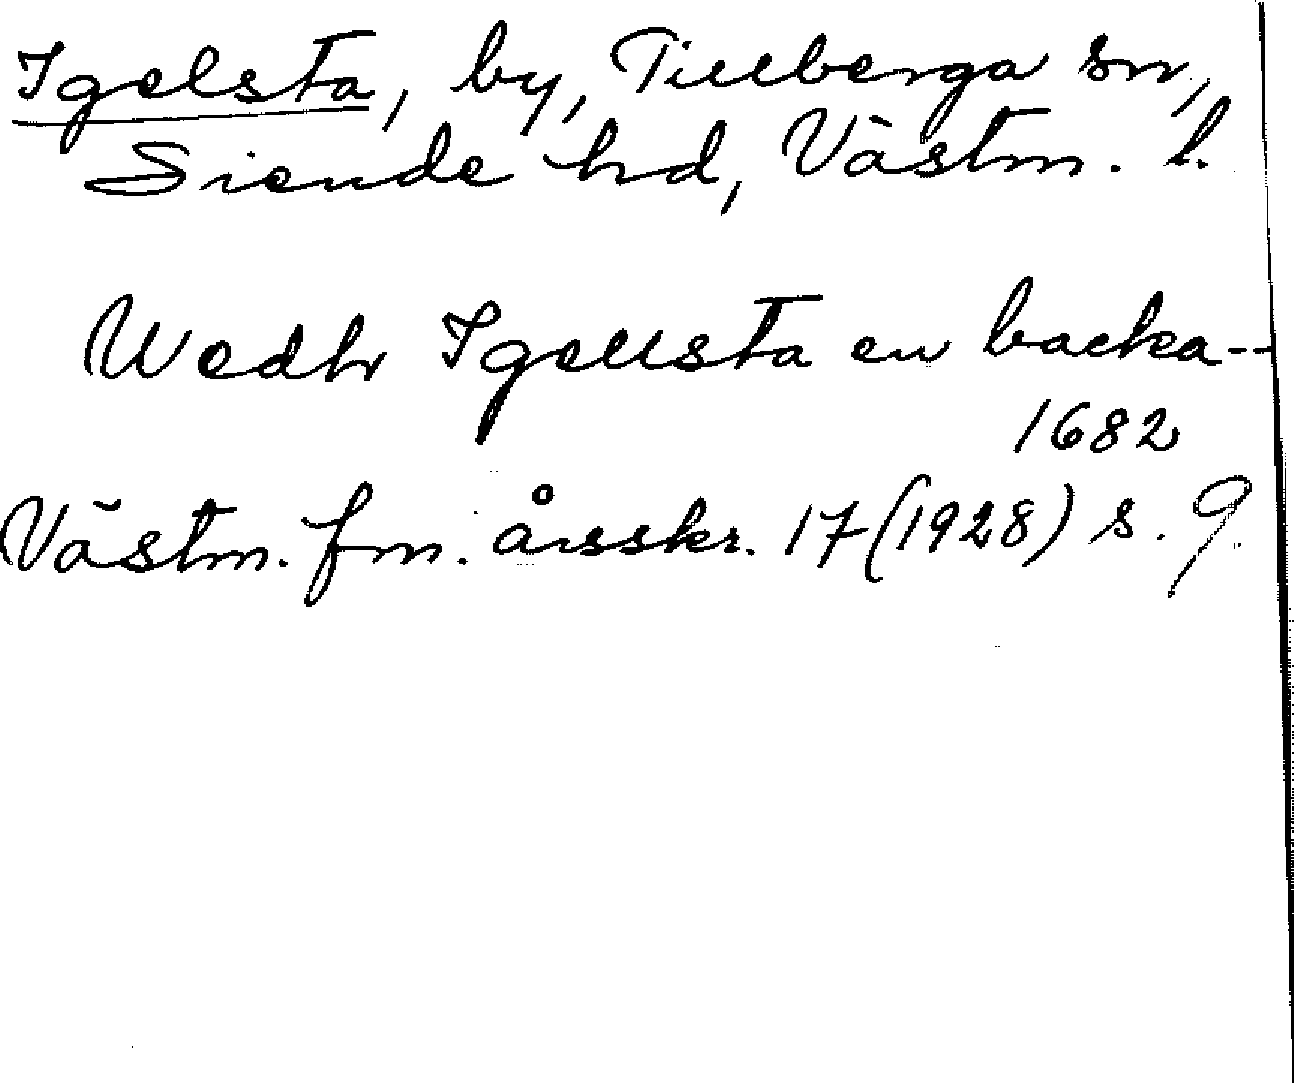 Igelsta, by, Tillberga sn,
Siende hd, Västm. l.
Wedh Igellsta en backa--
1682
Västm. fm. årsskr. 17 (1928) s. 9.